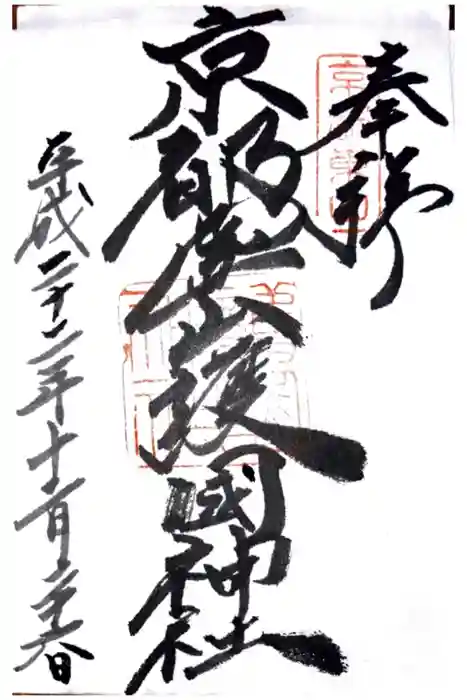 奉拝
京都霊山護國神社
平成二十二年十一月日